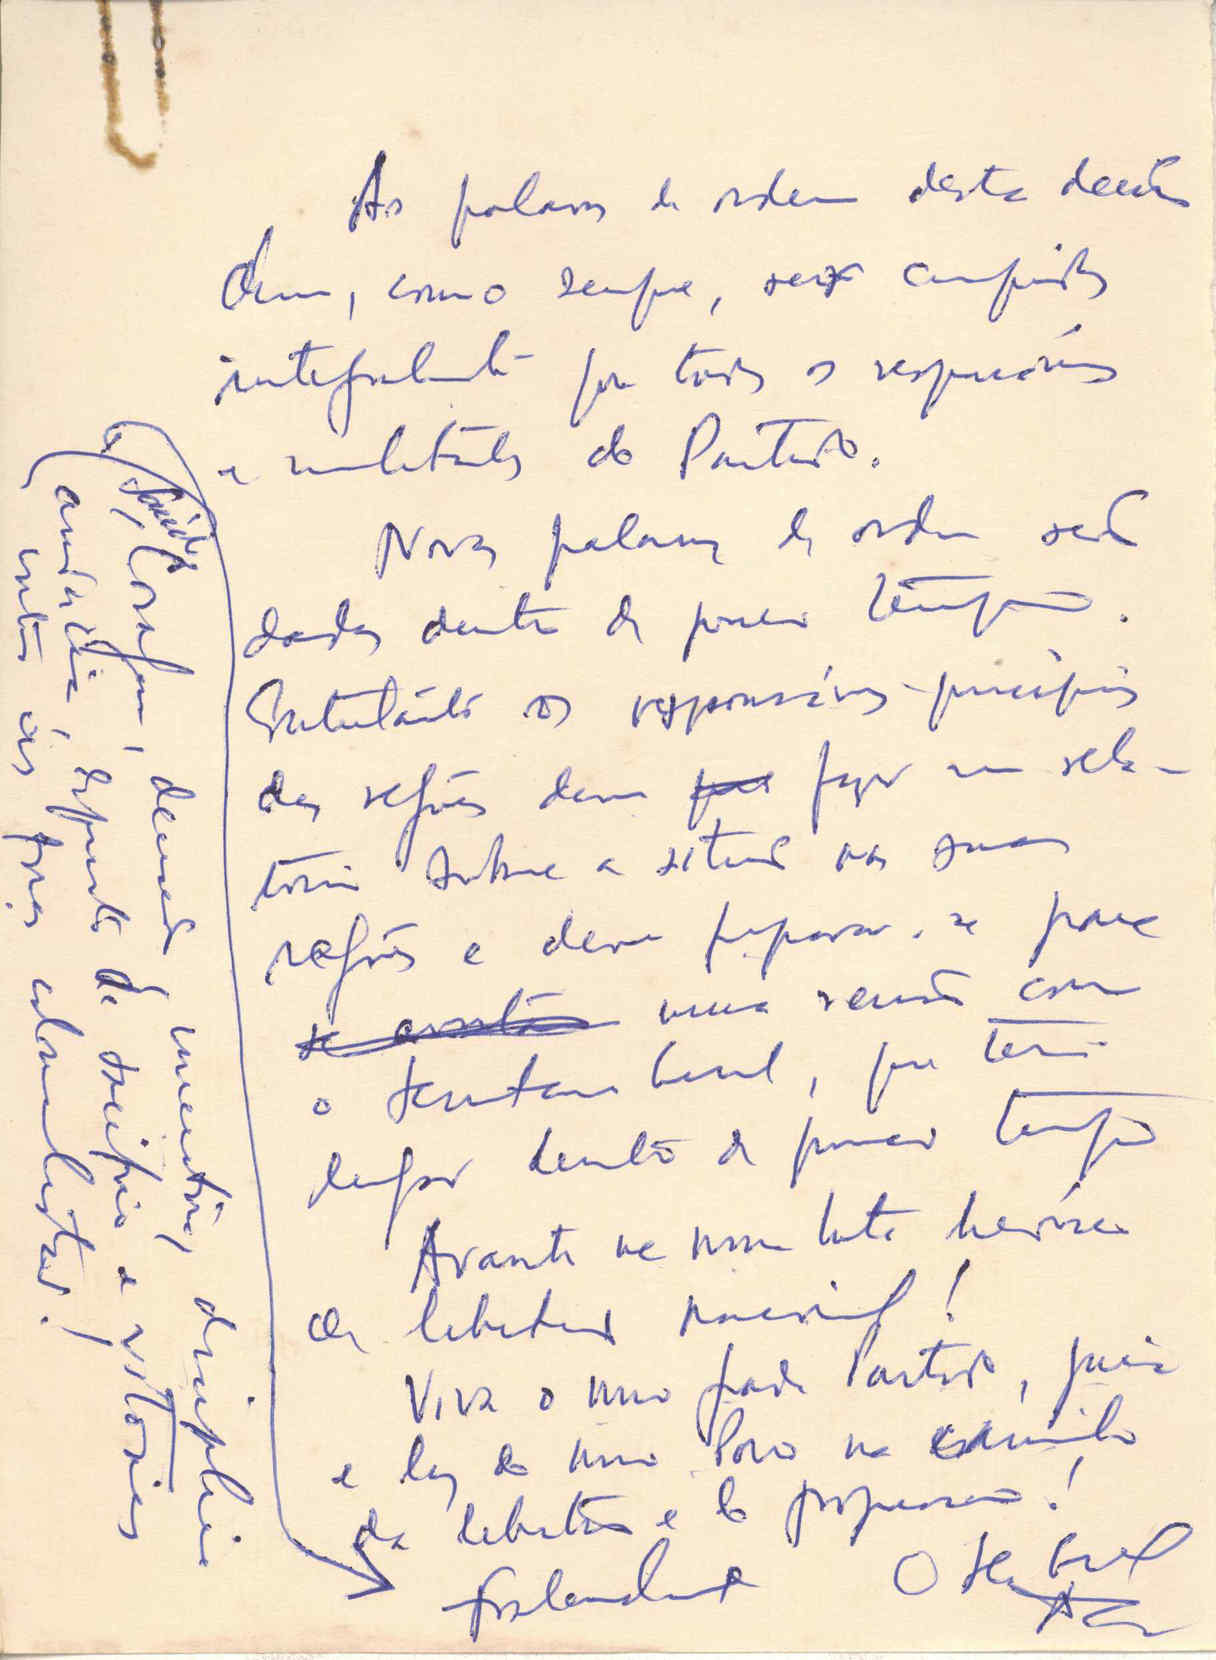 As palavras de ordem desta decisão
devem, como sempre, ser cumpridas
integralmente por todos os responsáveis
e militantes do Partido.
Novas palavras de ordem serão
dadas dentro de pouco tempo.
Entretanto os responsáveis principais
das regiões devem fazer um rela-
tório sobre a situação nas suas
regiões e devem preparar-se para
uma reunião com
o Secretário Geral, que terá
lugar dentro de pouco tempo
Avante na nossa luta heróica
de libertação nacional!
Viva o nosso grande Partido, guia
e luz do nosso Povo no caminho
da libertação e do progresso!
Fraternalmente O Sec Geral
Saúde, Coragem, decisão, iniciativa, disciplina
audácia, espírito de sacrifício e vitórias
contra as forças colonialistas!